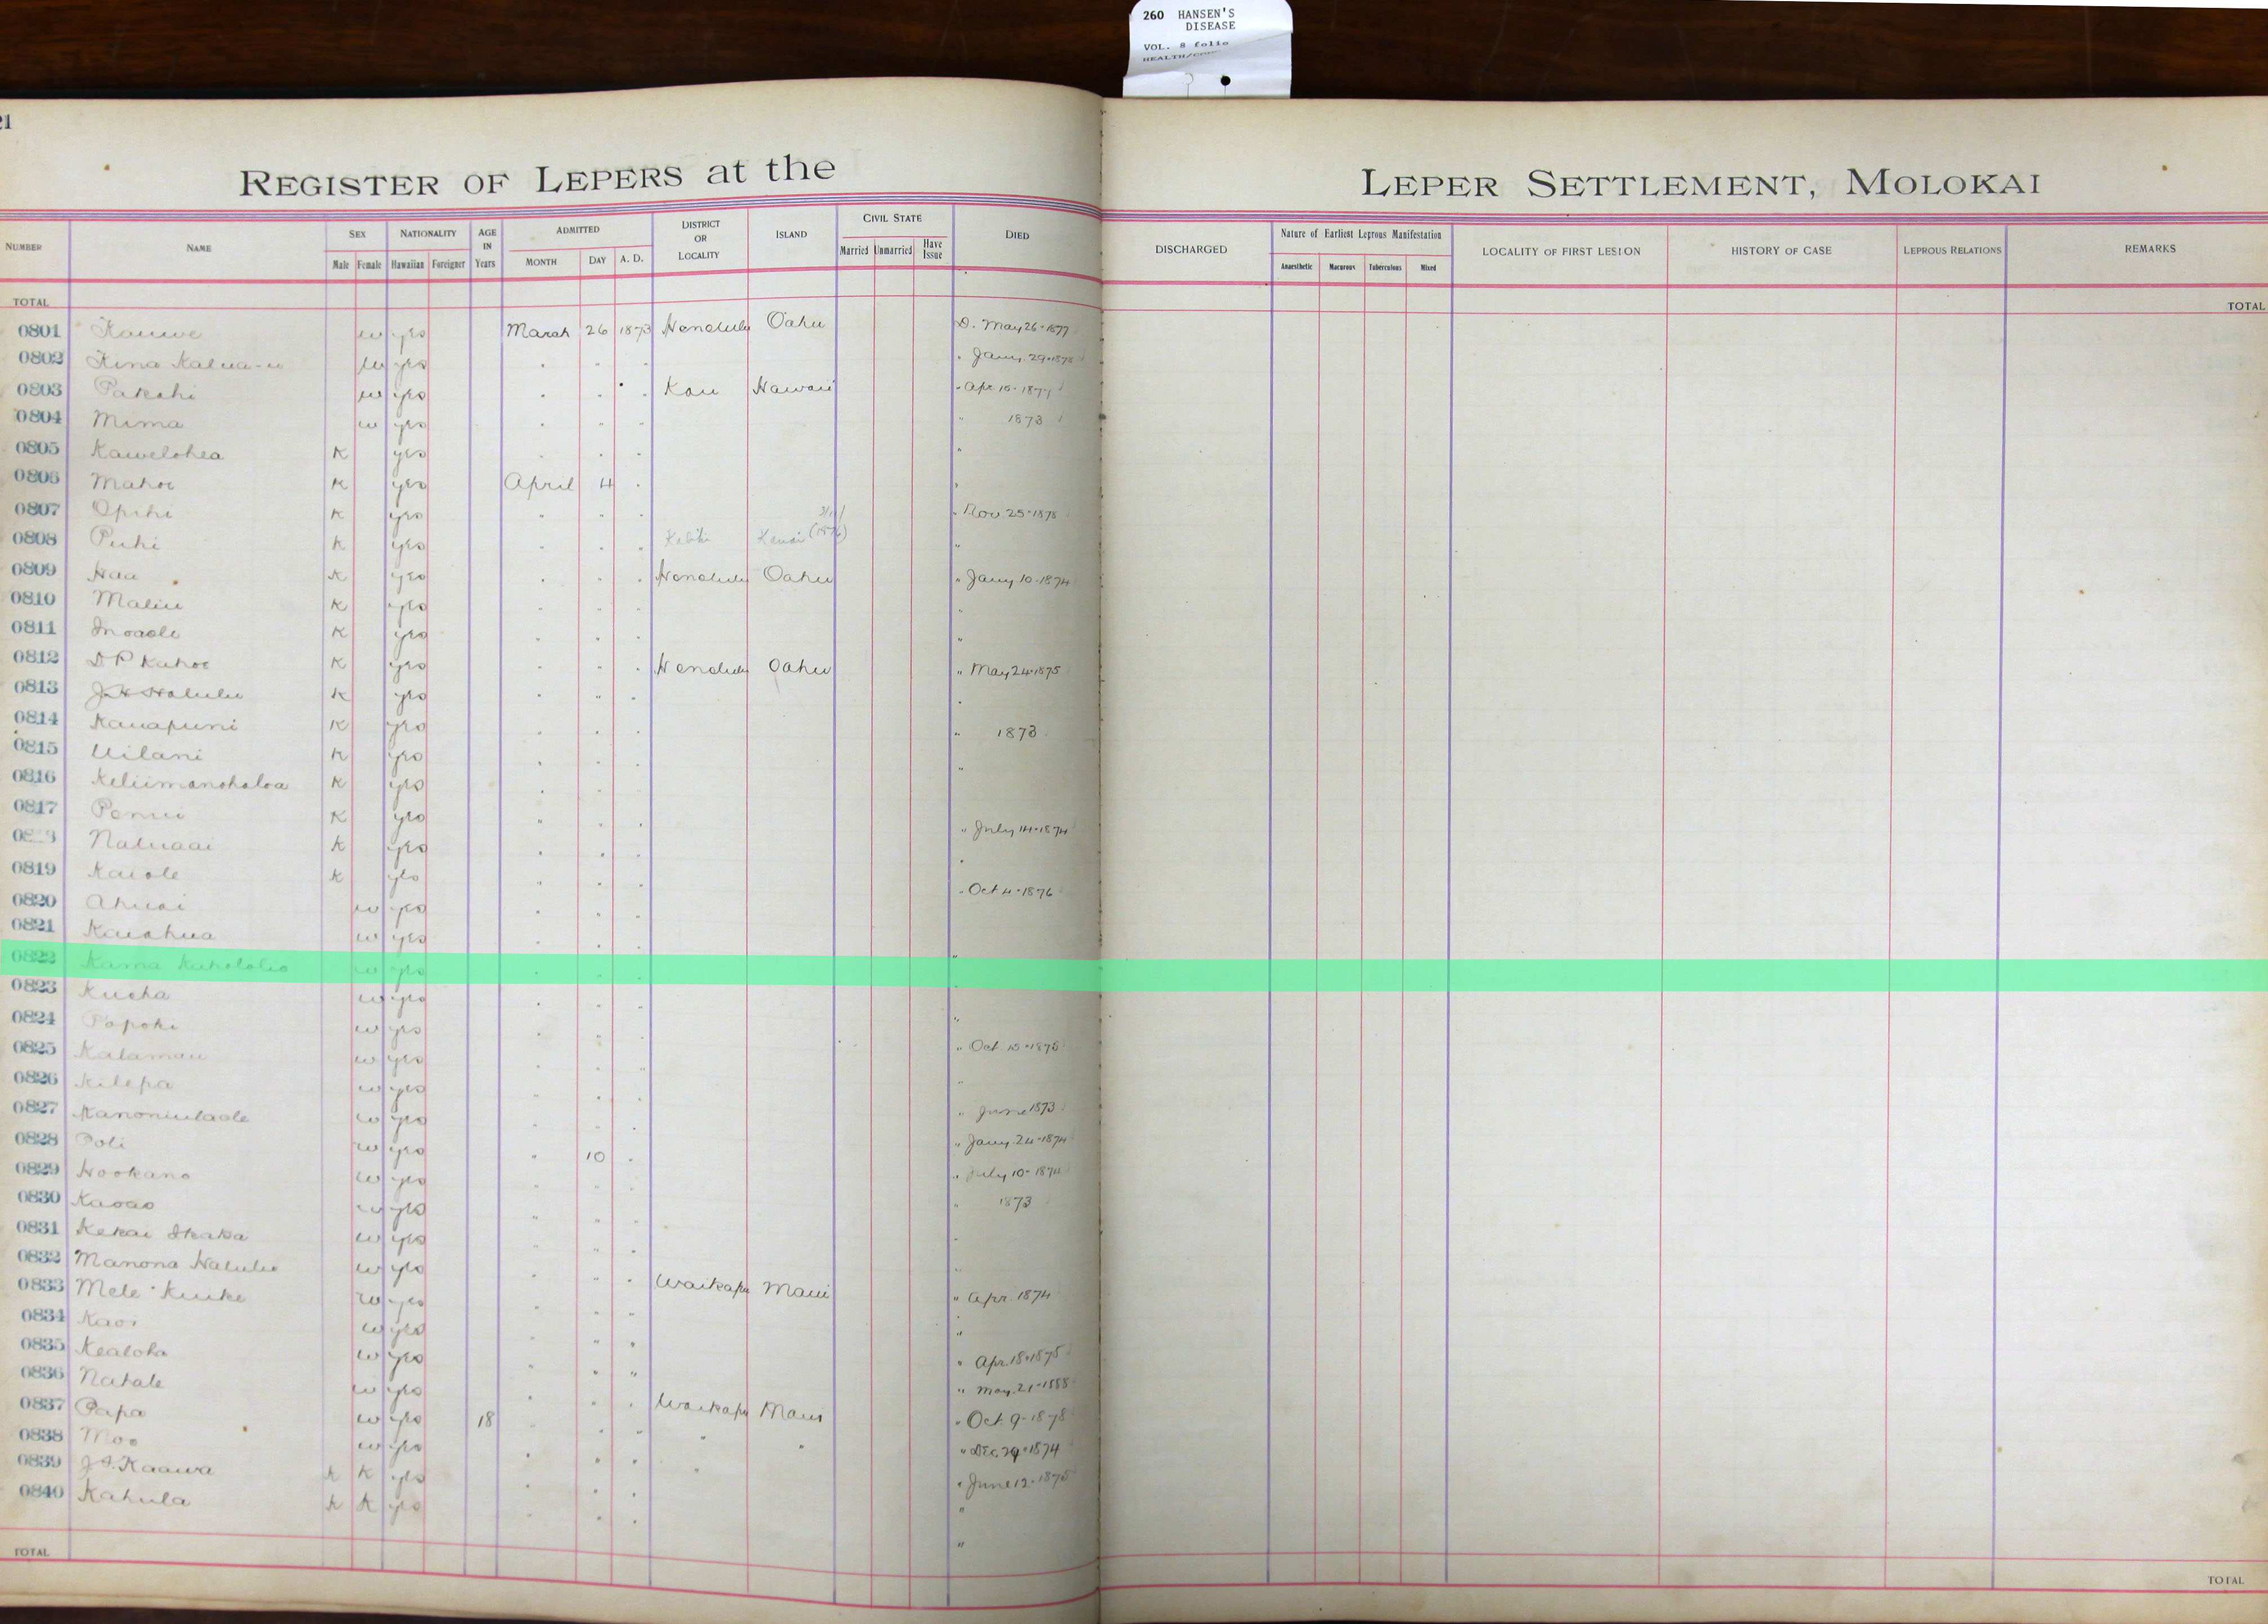 260 HANSEN'S
DISEASE
VOL. 8 folio
21
REGISTER OF LEPERS at the LEPER SETTLEMENT, MOLOKAI
NUMBER NAME SEX Male Female NATIONALITY Hawaiian Foreigner AGE IN Years ADMITTED MONTH DAY A. D. DISTRICT OR LOCALITY ISLAND CIVIL STATE Married Unmarried Have Issue DIED DISCHARGED Nature of Earliest Leprous Manifestation Anaesthetic Macurous Tuberculous Mixed LOCALITY OF FIRST LESION HISTORY OF CASE LEPROUS RELATIONS REMARKS
TOTAL TOTAL
0801 Kauwe w yes March 26 1873 Honolulu Oahu D. May 26-1877
0802 Kina Kalua-u w yes " " " " Jany. 29-1875
0803 Pakahi w yes " " " Kau Hawaii " Apr 15-1877
0804 Mima w yes " " " " 1873
0805 Kawelohea K yes " " " "
0806 Mahoe K yes April 4 " "
0807 Opihi K yes " " " " Nov 25-1878
0808 Puhi K yes " " " Kauai (1876) "
0809 Haa K yes " " " Honolulu Oahu " Jany 10-1874
0810 Maliu K yes " " " "
0811 Inoaole K yes " " " "
0812 D P Kahoe K yes " " " Honolulu Oahu " May 24-1875
0813 J H Halulu K yes " " " "
0814 Kauapuni K yes " " " " 1873
0815 Uilani K yes " " " "
0816 Keliimanoholoa K yes " " "
0817 Penui K yes " " " " July 14-1874
Naluaai K yes " " " "
0819 Kaiole K yes " " " " Oct 4-1876
0820 Ahuai w yes " " "
0821 Kaiahua w yes " " " "
0822 Kama Kahololio w yes " " " "
0823 Kueha w yes " " " "
0824 Papohi w yes " " " " Oct 15-1875
0825 Kalamau w yes " " " "
0826 Kilepa w yes " " " " June 1873
0827 Kanoniulaole w yes " " " " Jany. 24-1874
0828 Poli w yes " 10 " " July 10-1874
0829 Hookano w yes " " " " 1873
0830 Kaoao w yes " " " "
0831 Kekai Ikaka w yes " " " "
0832 Manona Halulu w yes " " " Waikapu Maui " Apr. 1874
0833 Mele Kuike w yes " " " "
0834 Kaoi w yes " " " " Apr. 18-1875
0835 Kealoha w yes " " " " May. 21-1888
0836 Nahale w yes " " " Waikapu Maui " Oct 9-1878
0837 Papa w yes 18 " " " " " " Dec. 29-1874
0838 Moo w yes " " " " " June 12-1875
0839 J. I. Kaawa K K yes " " " "
0840 Kahula K K yes " " " "
TOTAL TOTAL